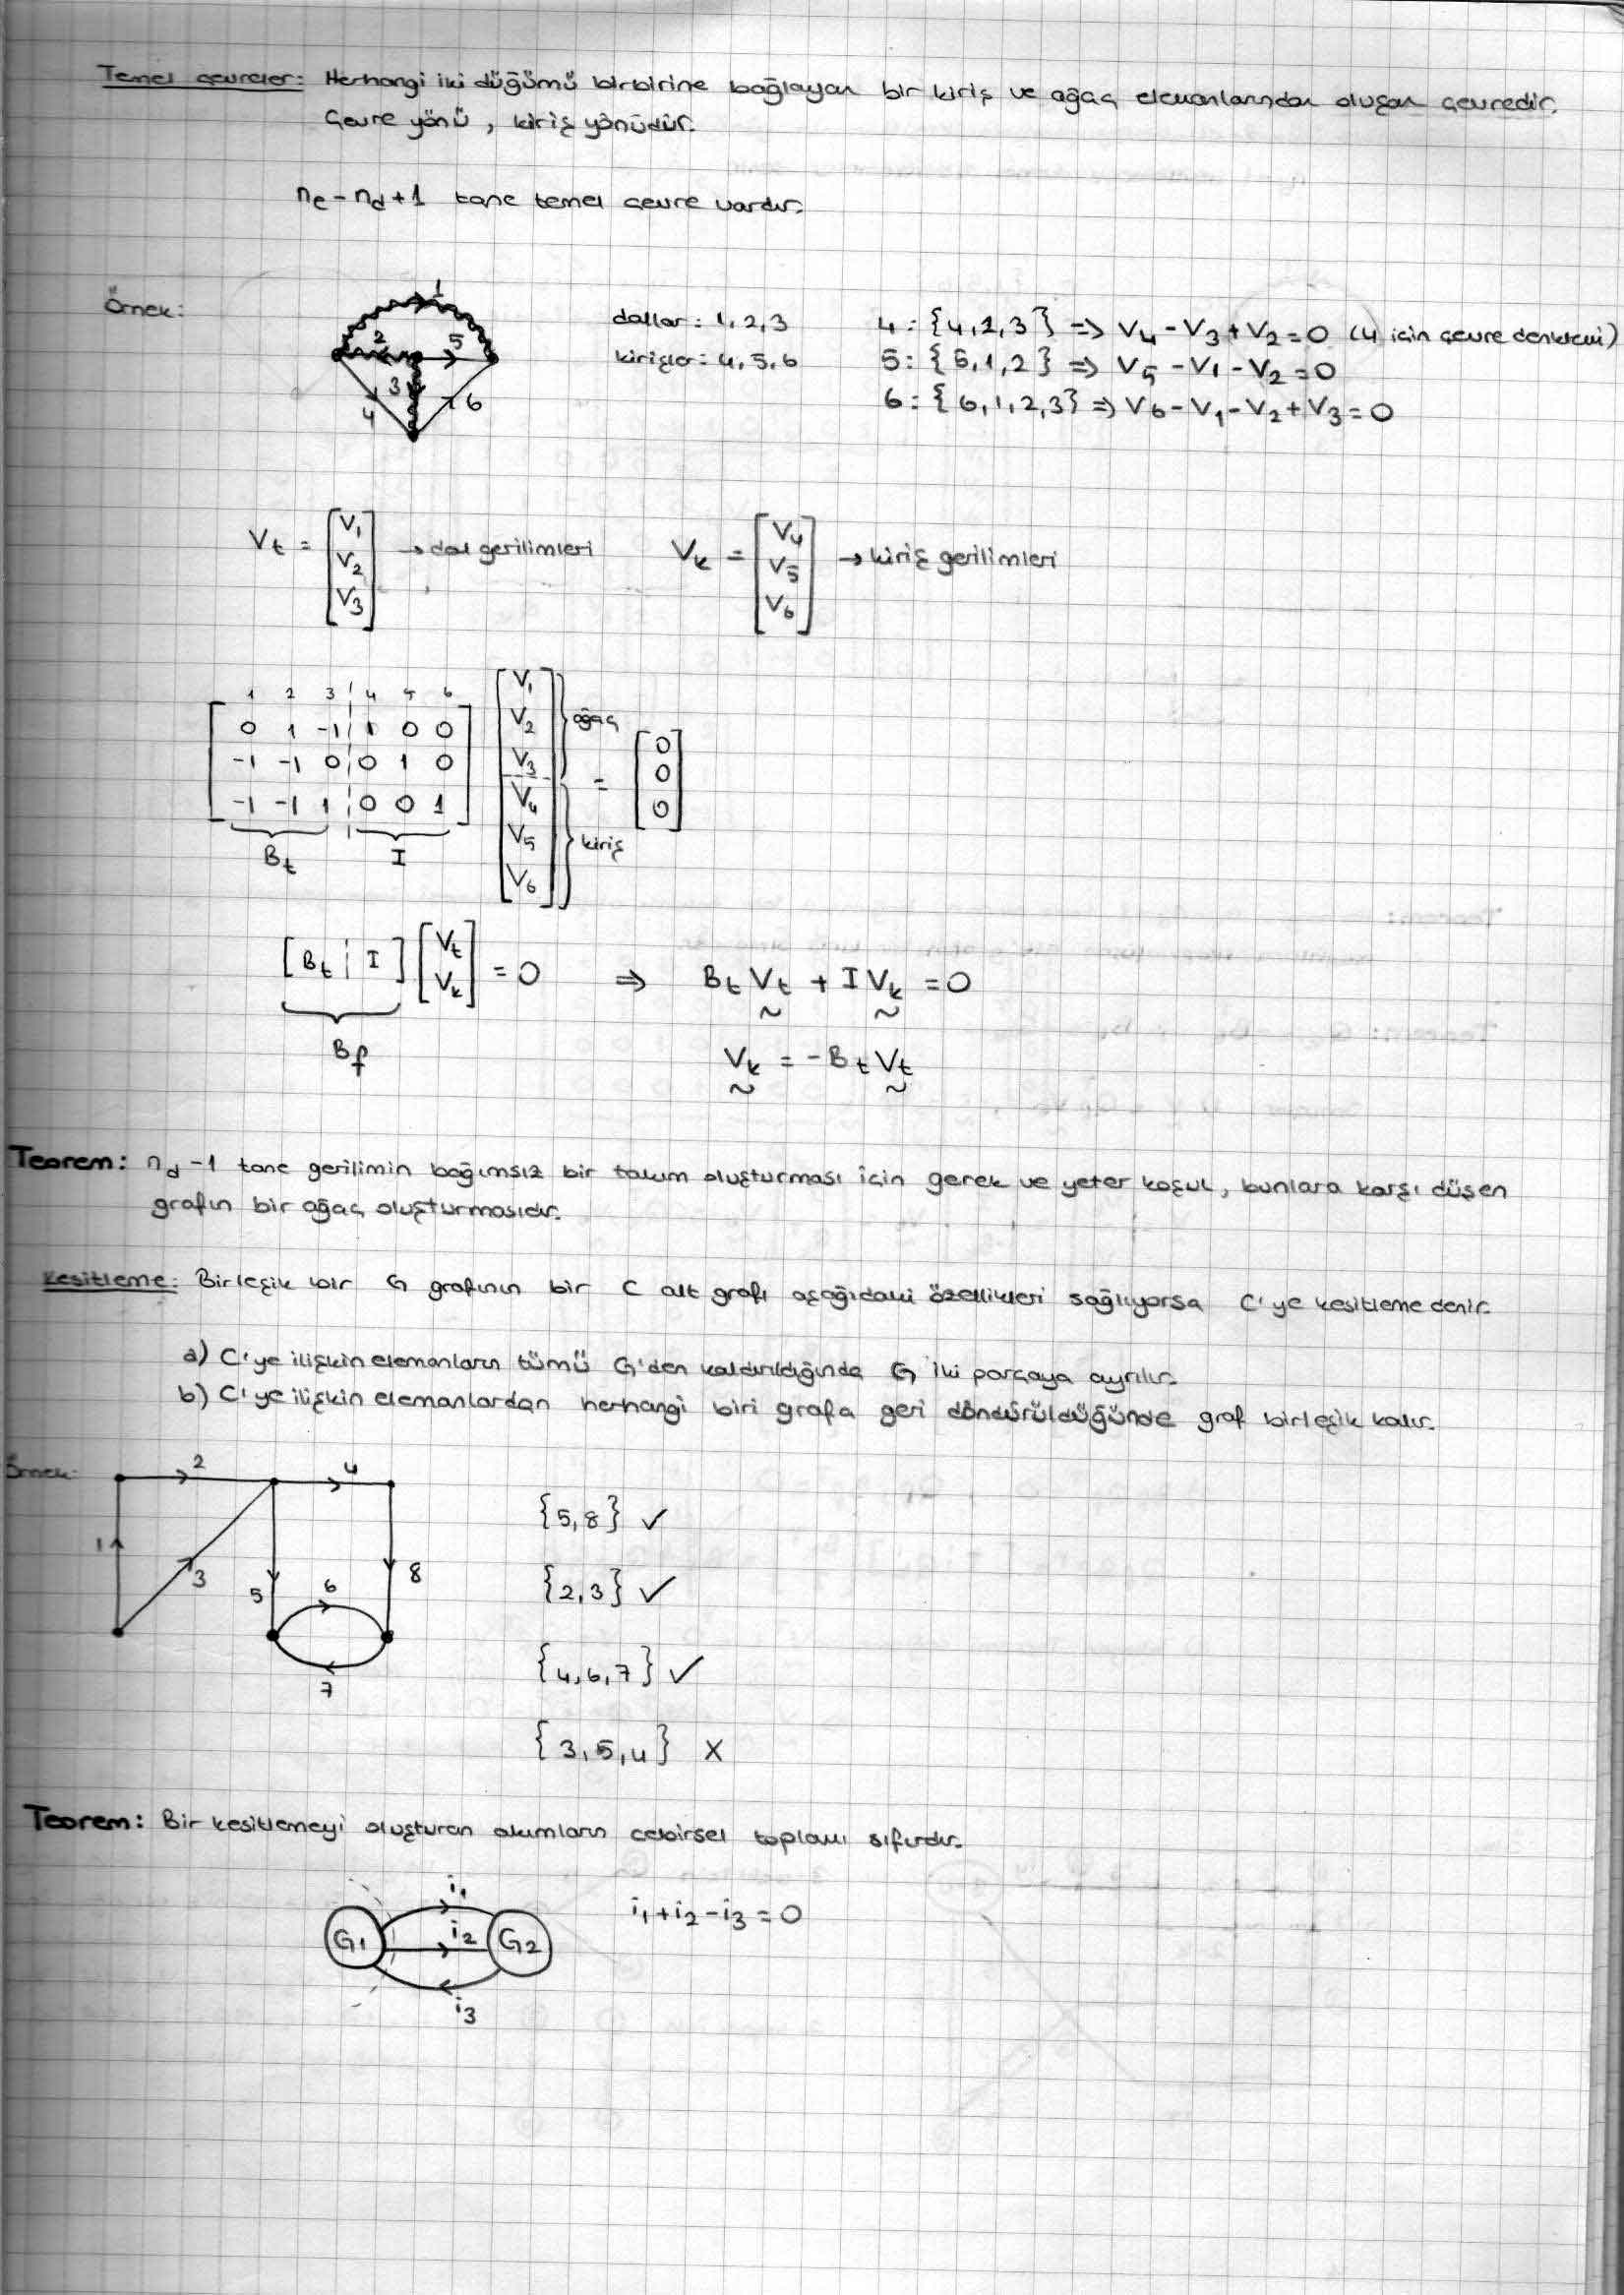 Temel çevreler: Herhangi iki düğümü birbirine bağlayan bir kiriş ve ağaç elemanlarından oluşan çevredir.
Çevre yönü, kiriş yönüdür.
nₑ - n_d + 1 tane temel çevre vardır.
Örnek:
1
2 5
3
4 6
dallar: 1, 2, 3
kirişler: 4, 5, 6
4: {4,2,3} => V₄ - V₃ + V₂ = 0 (4 için çevre denklemi)
5: {5,1,2} => V₅ - V₁ - V₂ = 0
6: {6,1,2,3} => V₆ - V₁ - V₂ + V₃ = 0
V_t = [V₁ V₂ V₃] → dal gerilimleri V_k = [V₄ V₅ V₆] → kiriş gerilimleri
1 2 3 4 5 6
0 1 -1 1 0 0
-1 -1 0 0 1 0
-1 -1 1 0 0 1
B_t I
V₁
V₂
V₃
V₄
V₅
V₆
ağaç
kiriş
=
0
0
0
[B_t | I] [V_t V_k] = 0 => B_t V_t + I V_k = 0
B_f
V_k = -B_t V_t
Teorem: n_d - 1 tane gerilimin bağımsız bir takım oluşturması için gerek ve yeter koşul, bunlara karşı düşen
grafın bir ağaç oluşturmasıdır.
Kesitleme: Birleşik bir G grafının bir C alt grafı aşağıdaki özellikleri sağlıyorsa C'ye kesitleme denir.
a) C'ye ilişkin elemanların tümü G'den kaldırıldığında G iki parçaya ayrılır.
b) C'ye ilişkin elemanlardan herhangi biri grafa geri döndürüldüğünde graf birleşik kalır.
Örnek:
2 4
1
3
5 6 8
7
{5,8} ✓
{2,3} ✓
{4,6,7} ✓
{3,5,4} X
Teorem: Bir kesitlemeyi oluşturan akımların cebirsel toplamı sıfırdır.
i₁
G₁ i₂ G₂
i₃
i₁ + i₂ - i₃ = 0